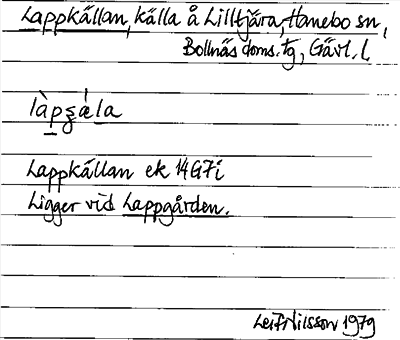 Lappkällan, källa å Lilltjära, Hanebo sn,
Bollnäs doms. tg, Gävl. l.
làpʂǽla
Lappkällan ek 14G7i
Ligger vid Lappgården.
Leif Nilsson 1979